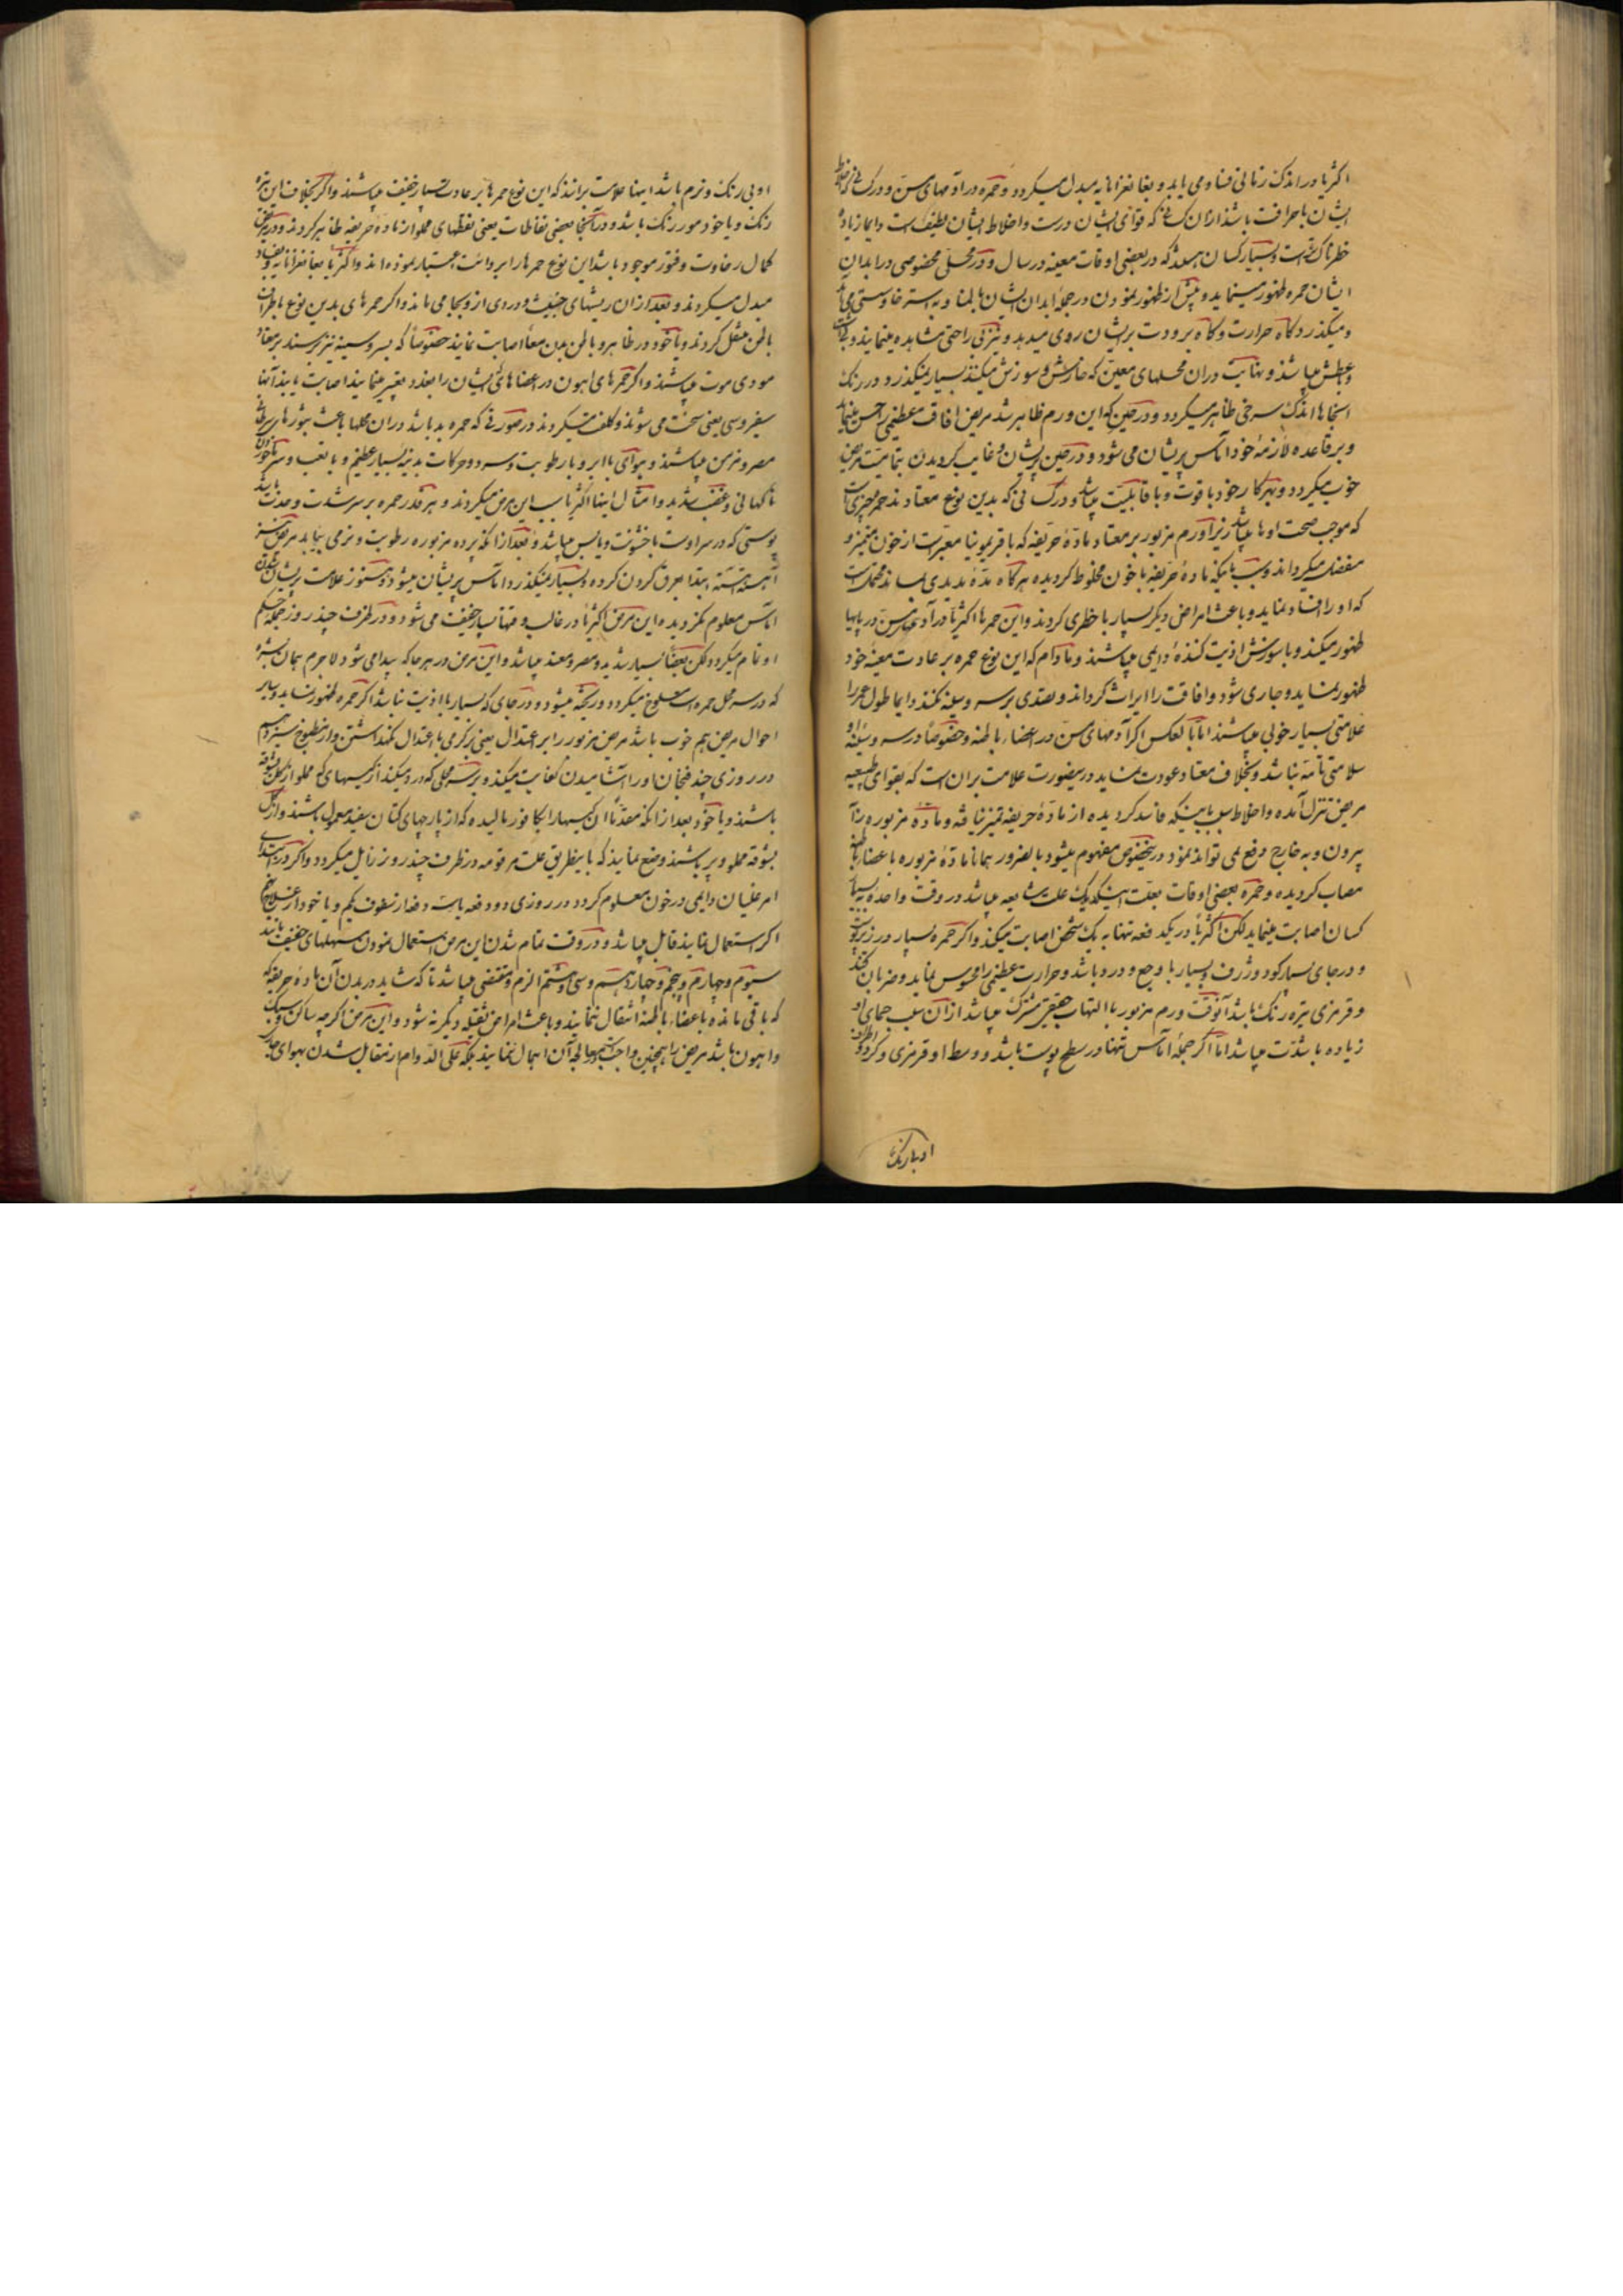 اکثریا در اندک زمانی فساد می یابد و بغانغرانایه مبدل میکردد و حمره در آدمهای مسن و در کسانی که اخلاط
ایشان با حرافت باشد از ان کسانی که قوای ایشان درست و اخلاط ایشان لطیف است دایما زیاده
خطرناک تر است و بسیار کسان هستند که در بعضی اوقات معینه در سال و در محل مخصوصی در ابدان
ایشان حمره ظهور مینماید و پیش از ظهور نمودن در جمله ابدان ایشان بالمنا و به استرخا و سستی می ماند
و میکذرد کاه حرارت و کاه برودت بر ایشان روی میدهد و تنزقی راحتی مشاهده مینمایند و
و عطش میباشد و نهایت در ان محلهای معین که خارش و سوزش میکنند بسیار نمیکذرد و در رنک
انجاها اندک سرخی ظاهر میکردد و در حین که این ورم ظاهر شد مریض افاقت عظیمی را حس مینماید
و بر قاعده لازمه خود اماس پریشان می شود و در حین پریشان و غایب کردیدن بتمامیت مریض
خوب میکردد و بهر کار خود با قوت و با قابلیت میباشد و در کسانی که بدین نوع معتادند حمره چیزی است
که موجب صحت اوها میباشد زیرا ورم مزبور بر معتاد ماده حریفه که با قریمونیا معبر است از خون متمیز و
منفصل میکرداند و سبب با اینکه ماده حریفه با خون مخلوط کردیده هر کاه مده مدیدی بماند ممکن است
که او را افساد نماید و باعث امراض دیکر بسیار با خطری کردند و این حمرها اکثریا در آدمهای مسن در پایها
ظهور میکند و با سوزنش اذیت کننده دایمی میباشند و مادام که این نوع حمره بر عادت معینه خود
ظهور نماید و جاری شود و افاقت را ایراث کرداند و تصدی بر سر و سینه نکند دایما طول عمر را
علامتی بسیار خوبی میباشند اما بالعکس اکر آدمهای مسن در اعضاء باطنه و خصوصا در سر و سینه او
سلامتی تامه نباشد و بخلاف معتاد عودت نماید در اینصورت علامت بر ان است که بقوای طبیعیه
مریض تنزل آمده و اخلاط بسبب اینکه فاسد کردیده از ماده حریفه تمیز نیافته و ماده مزبوره را
بیرون و به خارج دفع نمی تواند نمود در اینخصوص مفهوم میشود بالضرور همانا ماده مزبوره با عضاء باطنه
مصاب کردیده و حمره بعضی اوقات بعلت اینکه یک علت شایعه میباشد در وقت واحد به بسیار
کسان اصابت مینماید لکن اکثریا در یکدفعه تنها به یک شخص اصابت میکند و اکر حمره بسیار در زیر پوست
و در جای بسیار کود و ژرف و بسیار با وجع و درد باشد و حرارت عظیمی را محسوس نماید و ضربان کند
و قرمزی تیره رنک باشد آنوقت ورم مزبور با التهاب حقیقی مشترک میباشد از آن سبب حمای او
زیاده با شدت میباشد اما اکر جمله آماس تنها در سطح پوست باشد و وسط او قرمزی و کرداکرد
او بارنک
او بی رنک و نرم باشد اینها علامت برانند که این نوع حمرها بر عادت بسیار خفیف میباشند و اکر بخلاف این تیره
رنک و یا خود مور رنک باشد و در آنجا بعضی نفاطات یعنی نفطهای مملو از ماده حریفه ظاهر کردند و در مریض
کمال رخاوت و فتور موجود باشد این نوع حمرها را بر دائت اعتبار نموده اند و اکثریا بغانغرانایه و فساد
مبدل میکردند و بعد از ان ریشهای خبیث و ردی از و بجا می ماند و اکر حمرهای بدین نوع باطراف
باطن منتقل کردند و یا خود در ظاهر و باطن بدن معا اصابت نمایند خصوصا که بسر و سینه نیز برسند بر معتاد
مودی موت میباشند و اکر حمرهای اهون در اعضاهای ایشان را بغدد بتغییر نمایند اصابت یابند آنها
سقیروسی یعنی سخت می شوند و کلفت میکردند در صورتی که حمره بد باشد در ان محلها باعث بثورهای سرطانی
مصر و مزمن میباشند و هوای با ابر و با رطوبت و سرد و حرکات بدنیه بسیار عظیم و با تعب و سرما خوردن
ناکهانی و غضب شدید و امثال اینها اکثریا سبب این مرض میکردند و هر قدر حمره بر سر شدت و حدت باشد
پوستی که در سر اوست با خشونت و یابس میباشد و بعد از آنکه پرده مزبوره رطوبت و نرمی بیابد مریض نیز
آهسته آهسته ابتدا بعرق کردن کرده و بسیار نمیکذرد اماس پریشان میشود و هنوز علامت پریشان شدن
اماس معلوم نکردیده این مرض اکثریا در غالب وقتها بسیار خفیف می شود و در ظرف چند روز جمله حکم
او تمام میکردد لکن بعضا بسیار شدید و مصر و معند میباشد و این مرض در هر جا که پیدا می شود لاجرم بمان بشره
که در سر محل حمره است سلوخ میکردد و ریخته میشود و در جای که بسیار با اذیت نباشد اکر حمره ظهور نماید و سایر
احوال مریض هم خوب باشد مریض مزبور را بر اعتدال یعنی در کرمی با اعتدال نکهداشتن و از مطبوخ سیزدهم
در روزی چند فنجان او را آشامیدن کفایت میکند و بر سر محلی که درد میکند از کیسهای که مملو از کل بشوقه
باشند و یا خود بعد از انکه مقدما ان کیسها را بکافور مالیده که از پارچهای کتان سفید معمول باشند و از کل
بشوقه مملو و پر باشند وضع نمایند که باینطریق علت مرقومه در ظرف چند روز زایل میکردد و اکر در ابتدای
امر غلیان دایمی در خون معلوم کردد در روزی دو دفعه یا سه دفعه از سفوف یکم و یا خود از
اکر استعمال نمایند قابل میباشد و در وقت تمام شدن این مرض استعمال نمودن مسهلهای خفیف مانند
سیوم و چهارم و پنجم و چهاردهم و سی و هشتم الزم و مقتضی میباشد تا که شاید در بدن آن ماده حریفه که
که باقی مانده باعضاء باطنه انتقال ننمایند و باعث امراض ثقیله دیکر نه شود و این مرض اکرچه ساکن و سبک
و اهون باشد مریض را همچنین واجب است که بمعالجه آن اهمال ننمایند بلکه علی الدوام از مقابل شدن بهوای